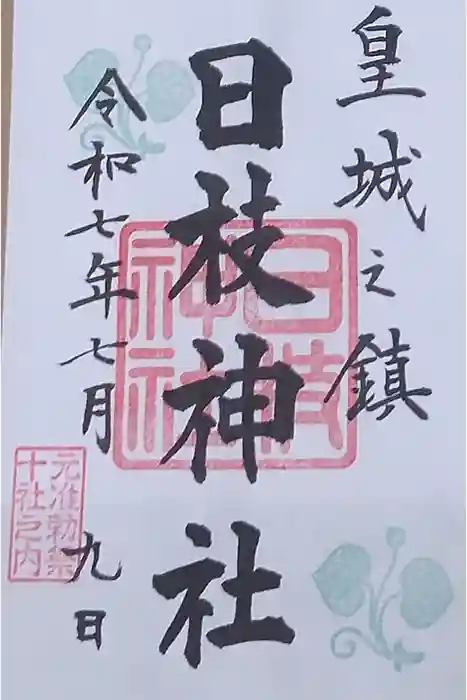 皇城之鎮
日枝神社
日枝
神社
令和七年七月九日
元准勅祭
十社之内